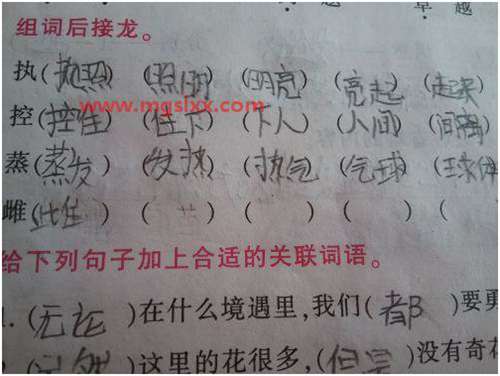 卓 越
组词后接龙。
执(执照) (照明) (明亮) (亮起) (起来)
www.mgslxx.com
控(控住) (住下) (下人) (人间) (间隔)
蒸(蒸发) (发热) (热气) (气球) (球体
雌( ) ( ) ( ) ( ) (
给下列句子加上合适的关联词语。
1. (无论)在什么境遇里,我们(都)要勇
(虽然)这里的花很多,(但是)没有奇花